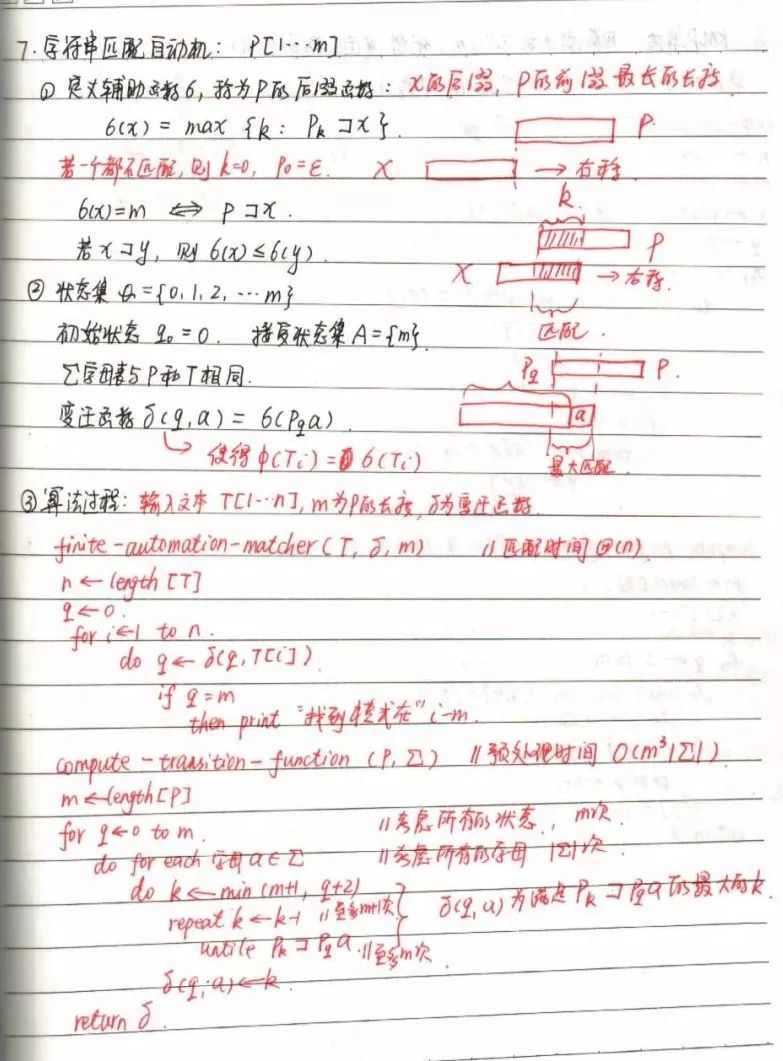 7. 字符串匹配自动机: P[1…m]
① 定义辅助函数 σ, 称为P的后缀函数: x的后缀, P的前缀 最长的长度
σ(x) = max {k: Pk ⊐ x}.
P
若一个都不匹配, 则 k=0, P0=ε.
X → 右移
σ(x)=m ⟺ P ⊐ x.
k
若 x ⊐ y, 则 σ(x) ≤ σ(y).
P
X → 右移.
② 状态集 Q = {0, 1, 2, … m}
初始状态 q0 = 0. 接受状态集 A = {m}.
匹配.
Σ字母表与P和T相同.
Pq P.
变迁函数 δ(q, a) = σ(Pqa).
a
使得 φ(Ti) = σ(Ti)
最大匹配.
③ 算法过程: 输入文本 T[1…n], m为P的长度, δ为变迁函数.
finite-automation-matcher(T, δ, m) // 匹配时间 Θ(n)
n ← length [T]
q ← 0.
for i←1 to n.
do q ← δ(q, T[i])
if q = m
then print "找到模式在" i-m.
compute-transition-function (P, Σ) // 预处理时间 O(m³|Σ|)
m ← length[P]
for q←0 to m. // 考虑所有的状态, m次.
do for each 字母 a ∈ Σ // 考虑所有的字母 |Σ|次.
do k ← min (m+1, q+2)
δ(q, a) 为满足 Pk ⊐ Pqa 的最大的k.
repeat k ← k-1 // 至多m+1次
untile Pk ⊐ Pqa. // 至多m次.
δ(q, a) ← k.
return δ.